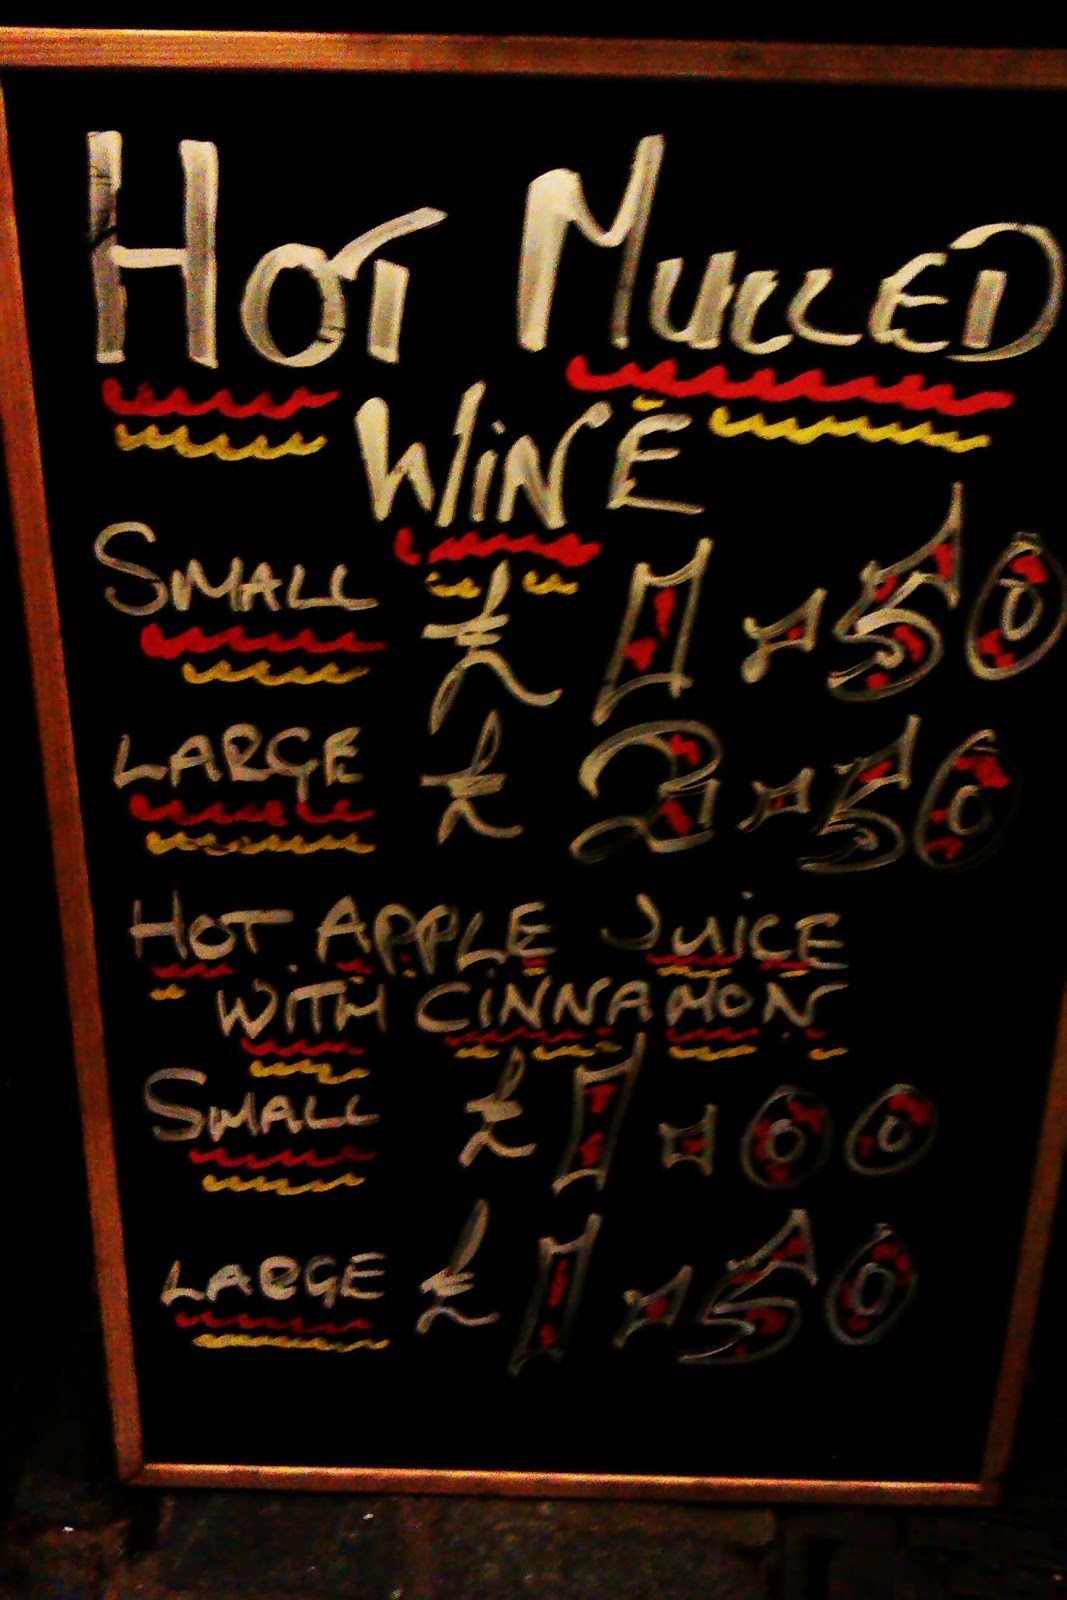 HOT MULLED
WINE
SMALL £1.50
LARGE £2.50
HOT APPLE JUICE
WITH CINNAMON
SMALL £1.00
LARGE £1.50